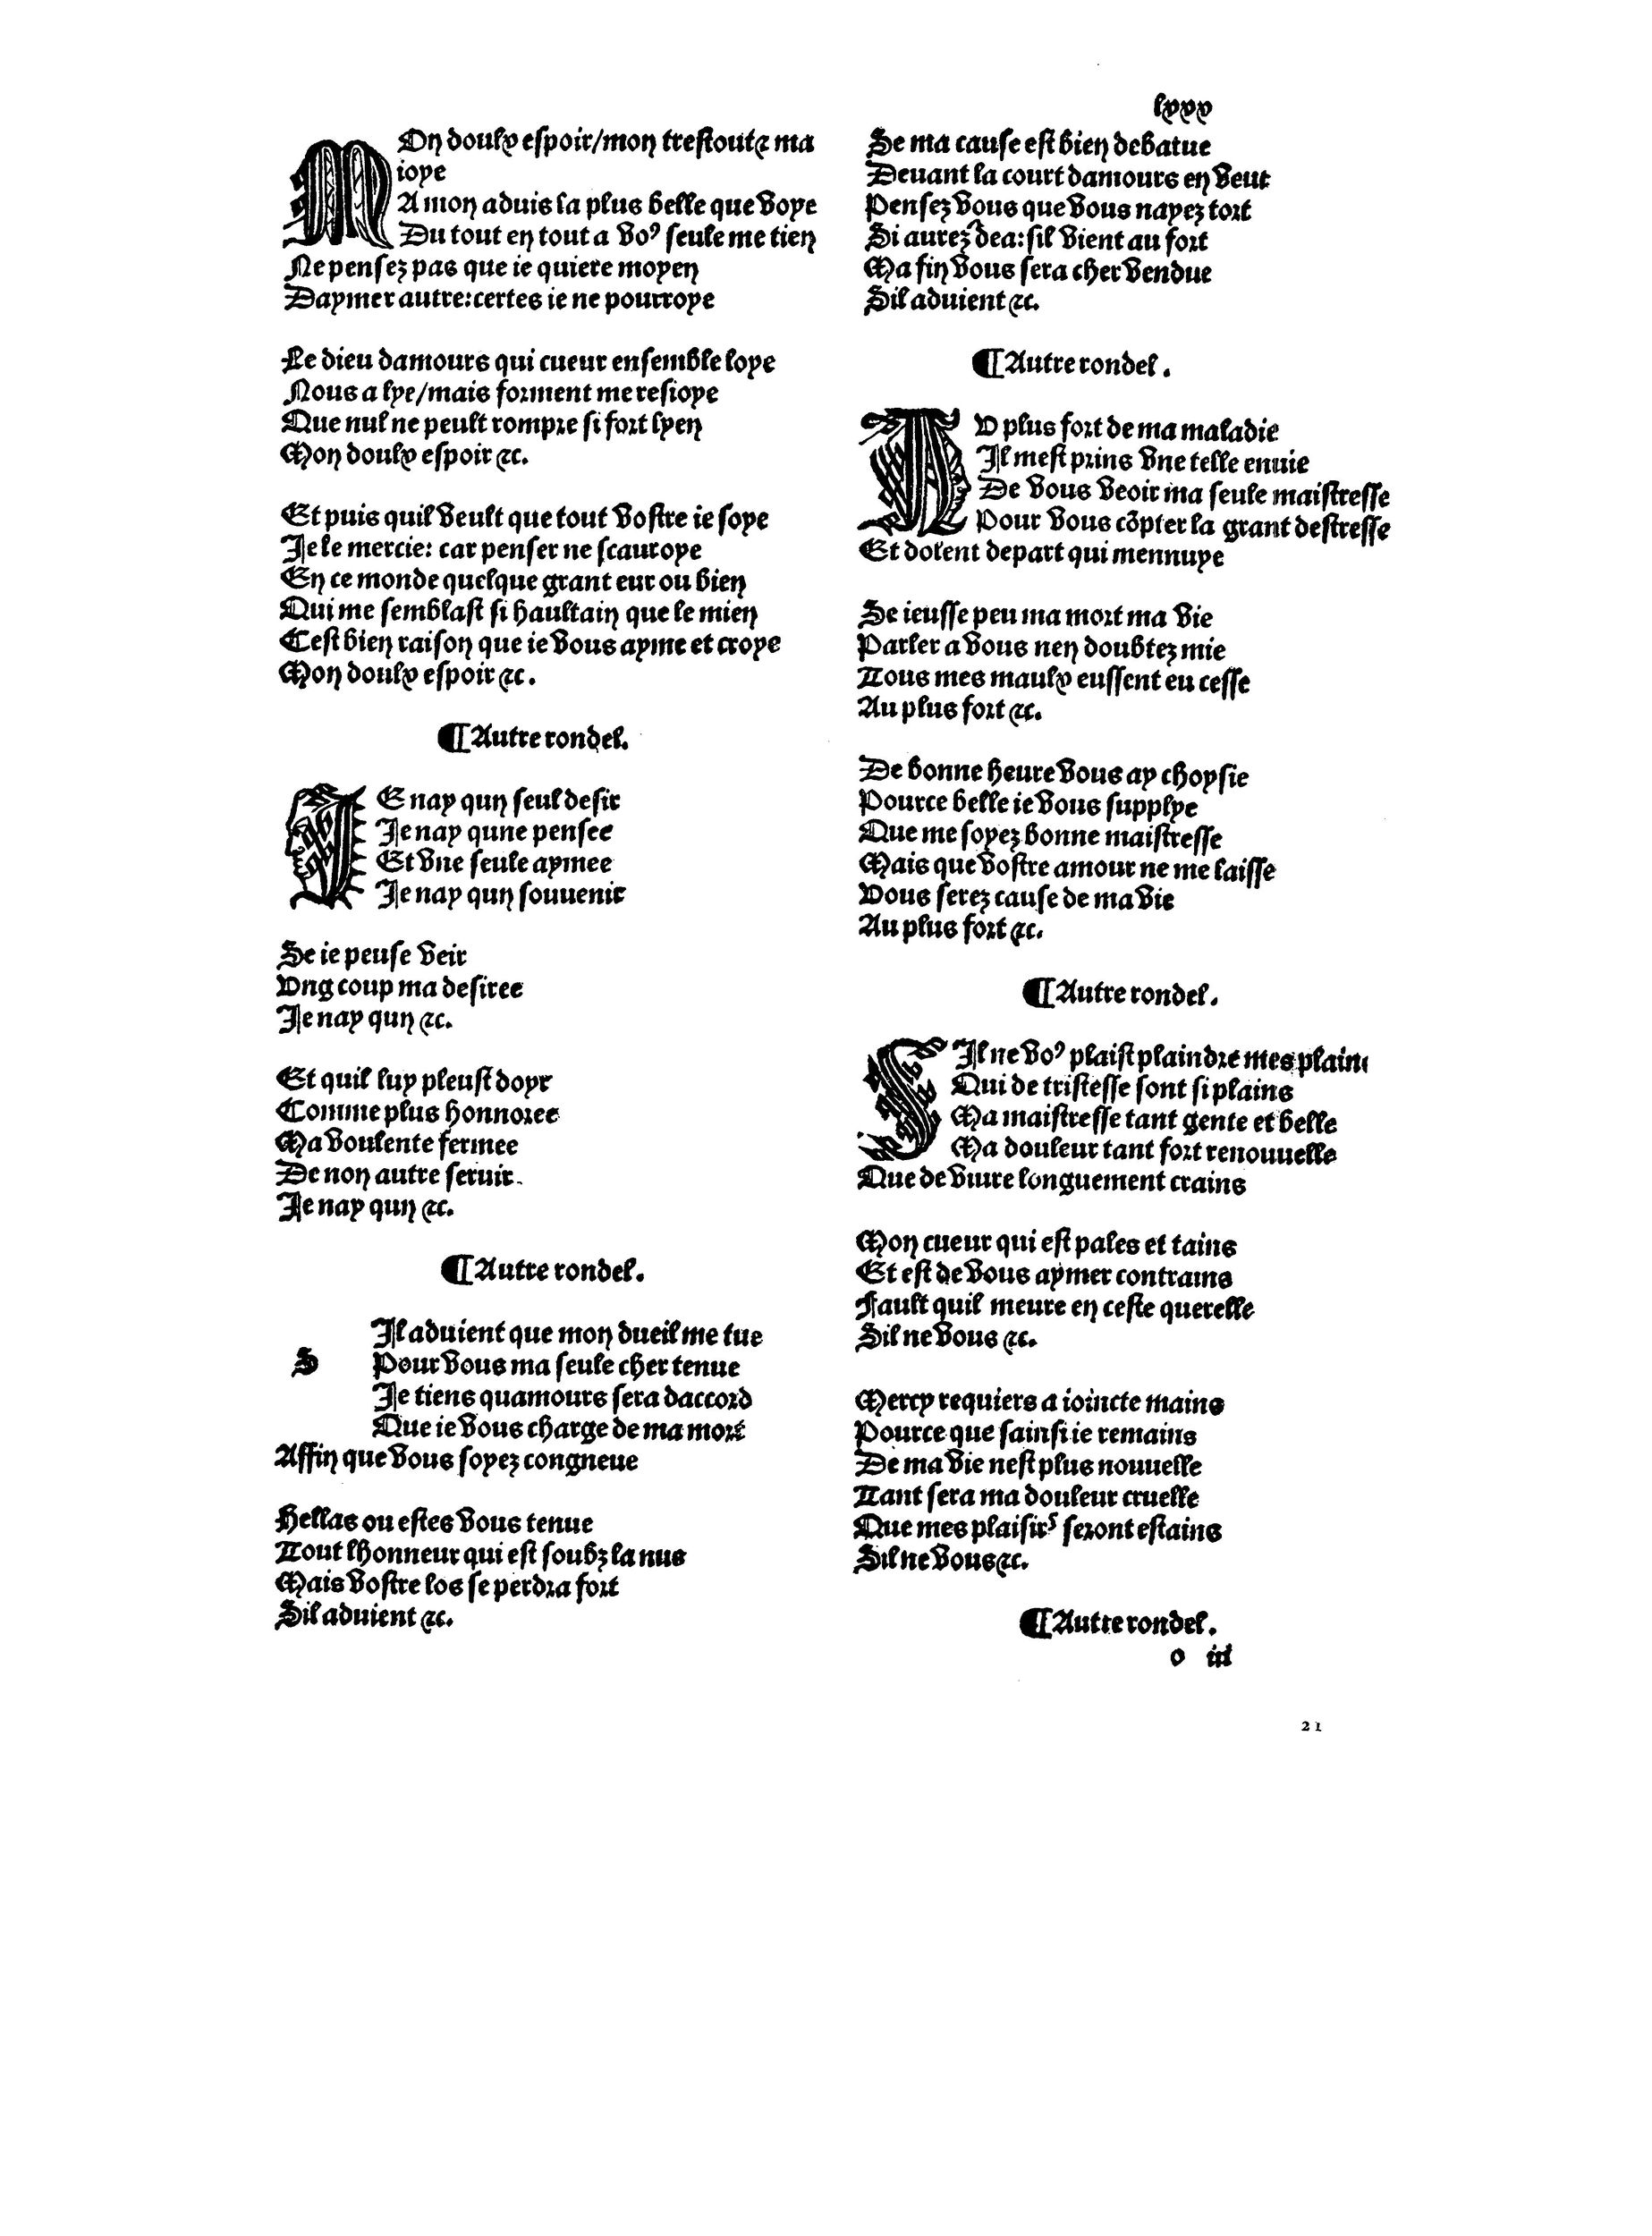 lxxx
MOn doulx espoir/mon trestoute ma
ioye
A mon aduis la plus belle que voye
Du tout en tout a vo⁹ seule me tien
Ne pensez pas que ie quiere moyen
Daymer autre:certes ie ne pourroye
Le dieu damours qui cueur ensemble loye
Nous a lye/mais forment me resioye
Que nul ne peult rompre si fort lyen
Mon doulx espoir ⁊c.
Et puis quil veult que tout vostre ie soye
Je le mercie: car penser ne scauroye
En ce monde quelque grant eur ou bien
Qui me semblast si haultain que le mien
Cest bien raison que ie vous ayme et croye
Mon doulx espoir ⁊c.
¶Autre rondel.
JE nay qun seul desir
Je nay qune pensee
Et vne seule aymee
Je nay qun souuenir
Se ie peuse veir
Vng coup ma desiree
Je nay qun ⁊c.
Et quil luy pleust doyr
Comme plus honnoree
Ma voulente fermee
De non autre seruir.
Je nay qun ⁊c.
¶Autre rondel.
SIl aduient que mon dueil me tue
Pour vous ma seule cher tenue
Je tiens quamours sera daccord
Que ie vous charge de ma mort
Affin que vous soyez congneue
Hellas ou estes vous tenue
Tout lhonneur qui est soubz la nus
Mais vostre los se perdra fort
Sil aduient ⁊c.
Se ma cause est bien debatue
Deuant la court damours en veut
Pensez vous que vous nayez tort
Si aurez dea:sil vient au fort
Ma fin vous sera cher vendue
Sil aduient ⁊c.
¶Autre rondel.
AV plus fort de ma maladie
Il mest prins vne telle enuie
De vous veoir ma seule maistresse
Pour vous cõpter la grant destresse
Et dolent depart qui mennuye
Se ieusse peu ma mort ma vie
Parler a vous nen doubtez mie
Tous mes maulx eussent eu cesse
Au plus fort ⁊c.
De bonne heure vous ay choysie
Pource belle ie vous supplye
Que me soyez bonne maistresse
Mais que vostre amour ne me laisse
Vous serez cause de ma vie
Au plus fort ⁊c.
¶Autre rondel.
SIl ne vo⁹ plaist plaindre mes plain
Qui de tristesse sont si plains
Ma maistresse tant gente et belle
Ma douleur tant fort renouuelle
Que de viure longuement crains
Mon cueur qui est pales et tains
Et est de vous aymer contrains
Fault quil meure en ceste querelle
Sil ne vous ⁊c.
Mercy requiers a ioincte mains
Pource que sainsi ie remains
De ma vie nest plus nouuelle
Tant sera ma douleur cruelle
Que mes plaisirs seront estains
Sil ne vous ⁊c.
¶Autre rondel.
o iii
21